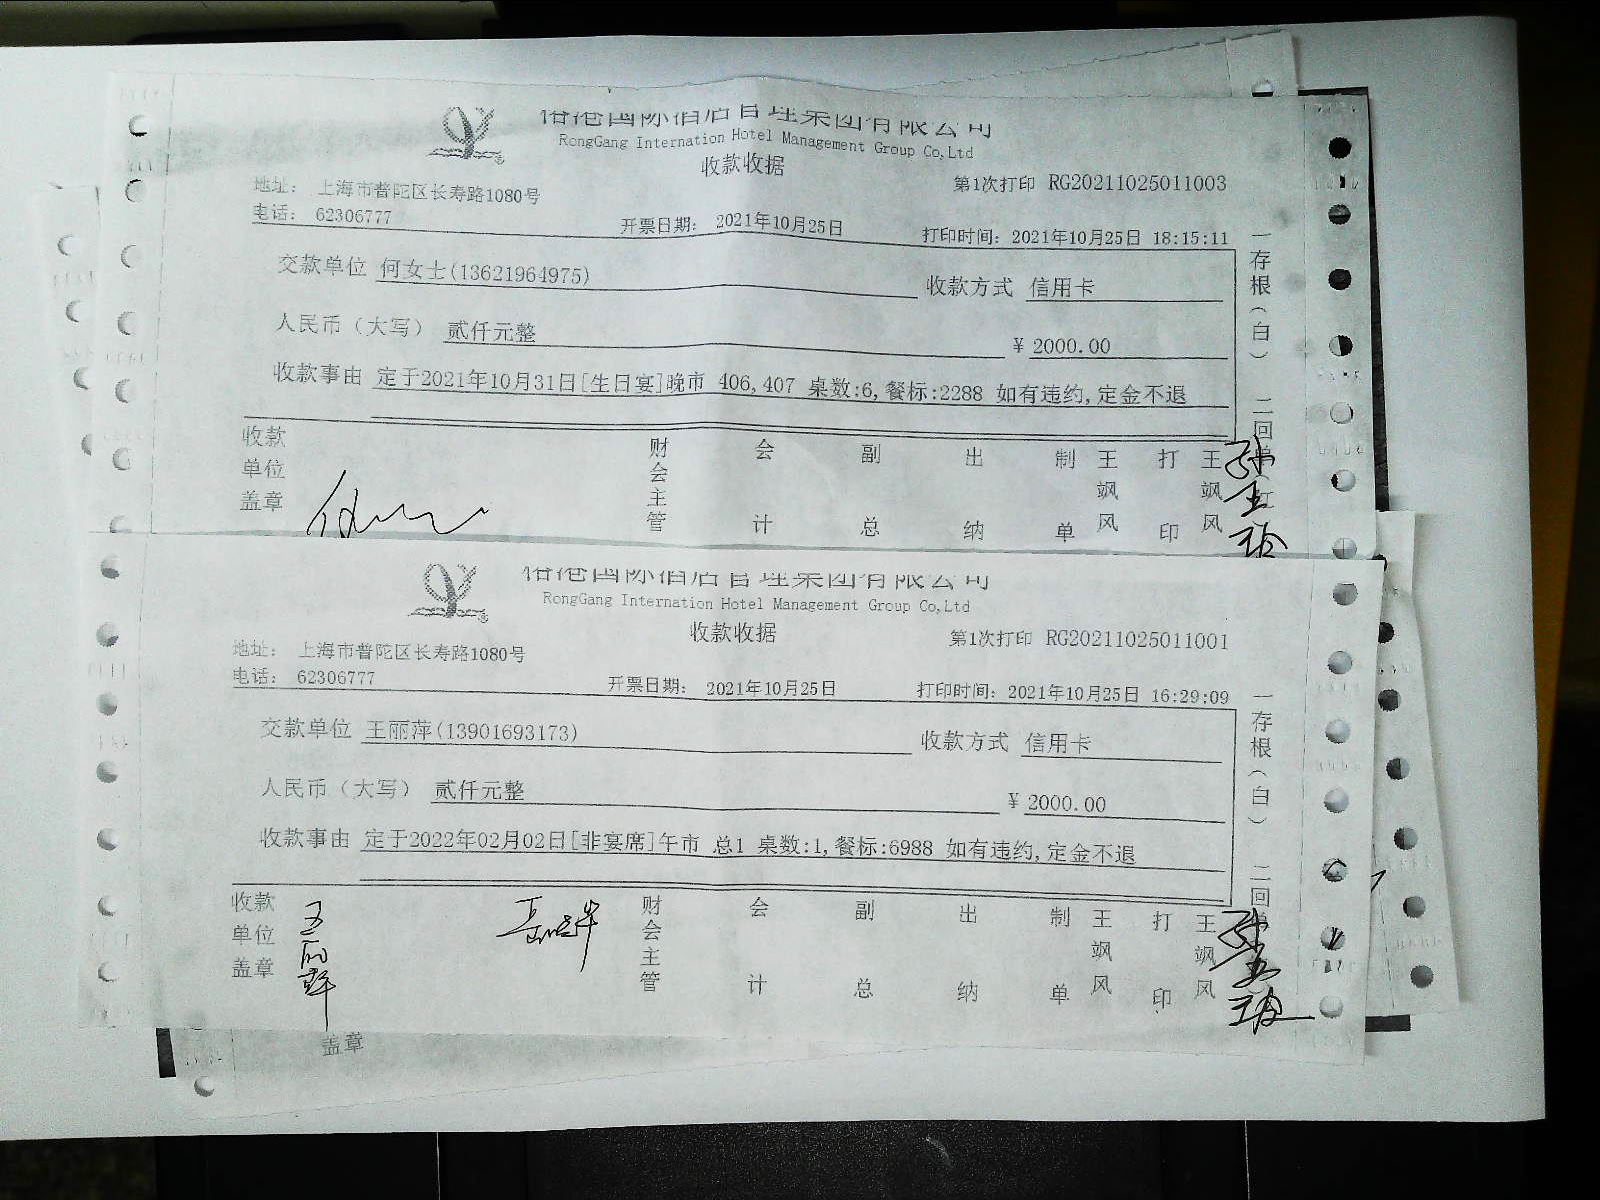 国际酒店管理集团有限公司
RongGang Internation Hotel Management Group Co,Ltd
收款收据
地址: 上海市普陀区长寿路1080号
第1次打印 RG20211025011003
电话: 62306777
开票日期: 2021年10月25日
打印时间: 2021年10月25日 18:15:11
交款单位 何女士(13621964975)
收款方式 信用卡
人民币（大写） 贰仟元整
¥ 2000.00
收款事由 定于2021年10月31日[生日宴]晚市 406,407 桌数:6,餐标:2288 如有违约,定金不退
收款单位盖章
财会主管
会计
副总
出纳
制单
王飒风
打印
王飒风
一存根（白） 二回单
国际酒店管理集团有限公司
RongGang Internation Hotel Management Group Co,Ltd
收款收据
地址: 上海市普陀区长寿路1080号
第1次打印 RG20211025011001
电话: 62306777
开票日期: 2021年10月25日
打印时间: 2021年10月25日 16:29:09
交款单位 王丽萍(13901693173)
收款方式 信用卡
人民币（大写） 贰仟元整
¥ 2000.00
收款事由 定于2022年02月02日[非宴席]午市 总1 桌数:1,餐标:6988 如有违约,定金不退
收款单位盖章
财会主管
会计
副总
出纳
制单
王飒风
打印
王飒风
一存根（白） 二回
盖章